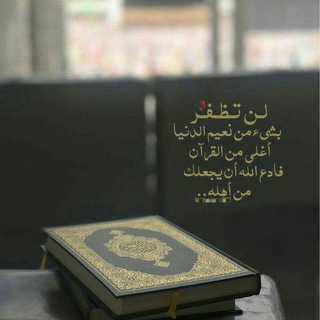 لن تظفر
بشيء من نعيم الدنيا
أغلى من القرآن
فادع الله أن يجعلك
من أهله..